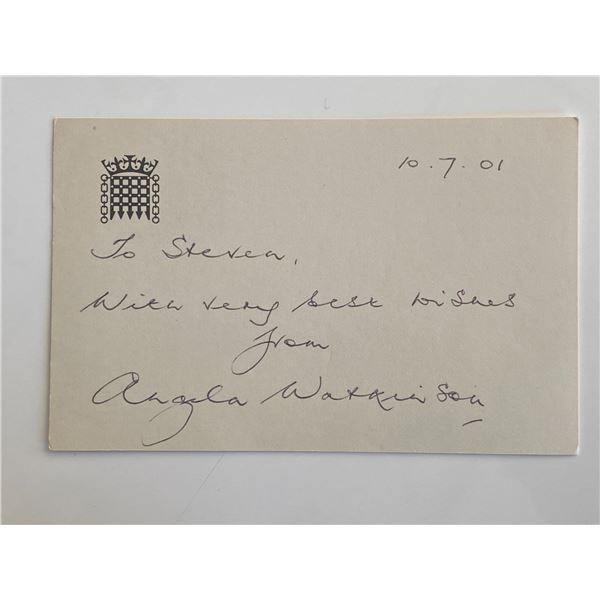 10.7.01
To Steven,
With very best wishes
from
Angela Watkinson